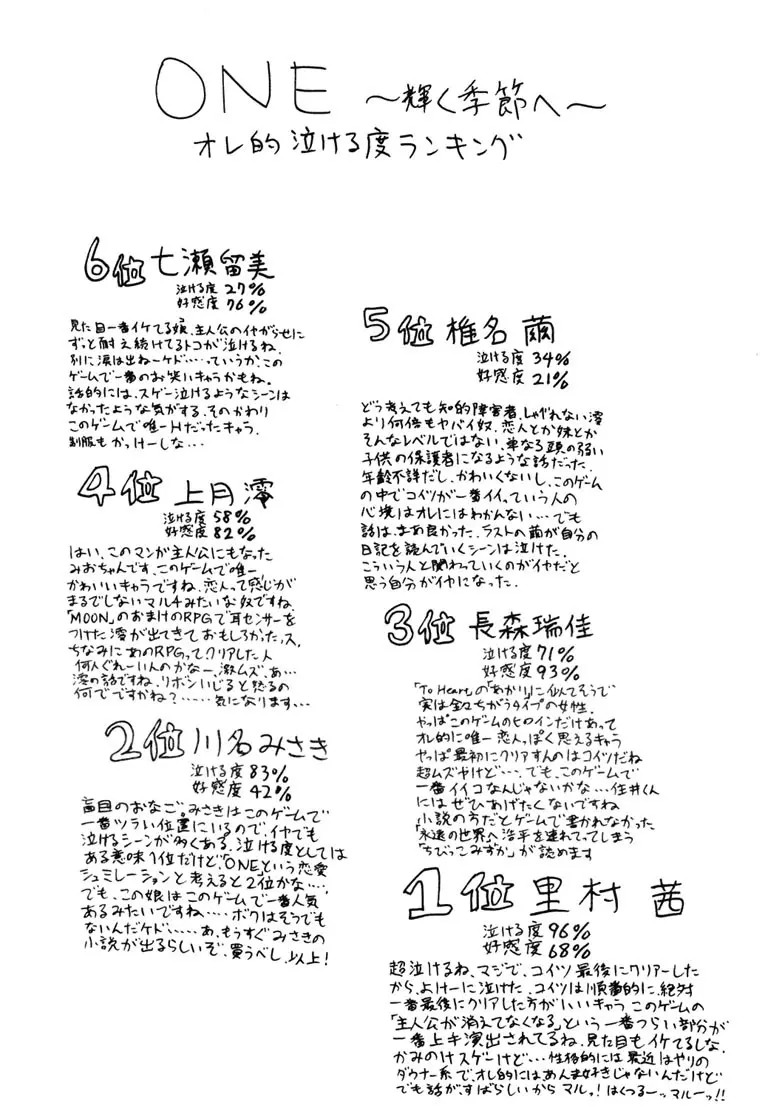 ONE ～輝く季節へ～
オレ的泣ける度ランキング
6位 七瀬留美
泣ける度 27%
好感度 76%
見た目一番イケてる娘、主人公のイヤがらせに
ずっと耐え続けてるトコが泣けるね。
別に涙は出ねーケド……っていうか、この
ゲームで一番のお笑いキャラかもね。
話的には、スゲー泣けるようなシーンは
なかったような気がする、そのかわり
このゲームで唯一Hだったキャラ、
制服もかっけーしな…
5位 椎名 繭
泣ける度 34%
好感度 21%
どう考えても知的障害者、しゃべれない澪
より何倍もヤバイ奴、恋人とか妹とか
そんなレベルではない、単なる頭の弱い
子供の保護者になるような話だった。
年齢不詳だし、かわいくないし、このゲーム
の中でコイツが一番イイっていう人の
心境はオレにはわかんない…でも
話は、まぁ良かった、ラストへ繭が自分の
日記を読んでいくシーンは泣けた。
こういう人と関わっていくのがイヤだと
思う自分がイヤになった。
4位 上月澪
泣ける度 58%
好感度 82%
はい、このマンガ主人公にもなった
みおちゃんです、このゲームで唯一
かわいいキャラですね、恋人って感じが
まるでしないマルチみたいな奴ですね、
「MOON」のおまけのRPGで耳センサーを
つけた澪が出てきておもしろかったっス、
ちなみにあのRPGってクリアした人
何人ぐれーいんのかなー、激ムズ、あ…
澪の話ですね、リボンいじると怒るの
何でですかね?……気になります…
3位 長森瑞佳
泣ける度 71%
好感度 93%
「To Heart」の「あかり」に似てそうで
実は全くちがうタイプの女性。
やっぱこのゲームのヒロインだけあって
オレ的に唯一恋人っぽく思えるキャラ
やっぱ最初にクリアすんのはコイツだね
超ムズヤけど…、でも、このゲームで
一番イイコなんじゃないかな…住井くん
にはぜひあげたくないですね
小説の方だとゲームで書かれなかった
「永遠の世界へ浩平を連れてってしまう
「ちびっこみずか」が読めます
2位 川名みさき
泣ける度 83%
好感度 42%
盲目のおなご。みさきはこのゲームで
一番ツラい位置にいるので、イヤでも
泣けるシーンが多くある、泣ける度としては
ある意味1位だけど、「ONE」という恋愛
シュミレーションと考えると2位かな…、
でも、この娘はこのゲームで一番人気
あるみたいですね……ボクはそうでも
ないんだケド……あ、もうすぐみさきの
小説が出るらしいぞ、買うべし、以上!
1位 里村 茜
泣ける度 96%
好感度 68%
超泣けるね、マジで、コイツ最後にクリアーした
から、よけーに泣けた、コイツは順番的に、絶対
一番最後にクリアした方がいいキャラ このゲームの
「主人公が消えてなくなる」という一番つらい部分が
一番上手演出されてるね、見た目もイケてるしな、
かみのけスゲーけど…性格的には最近はやりの
ダウナー系で、オレ的にはあんま好きじゃないんだけど
でも話が、すばらしいからマルッ! はくつるーッマルーッ!!